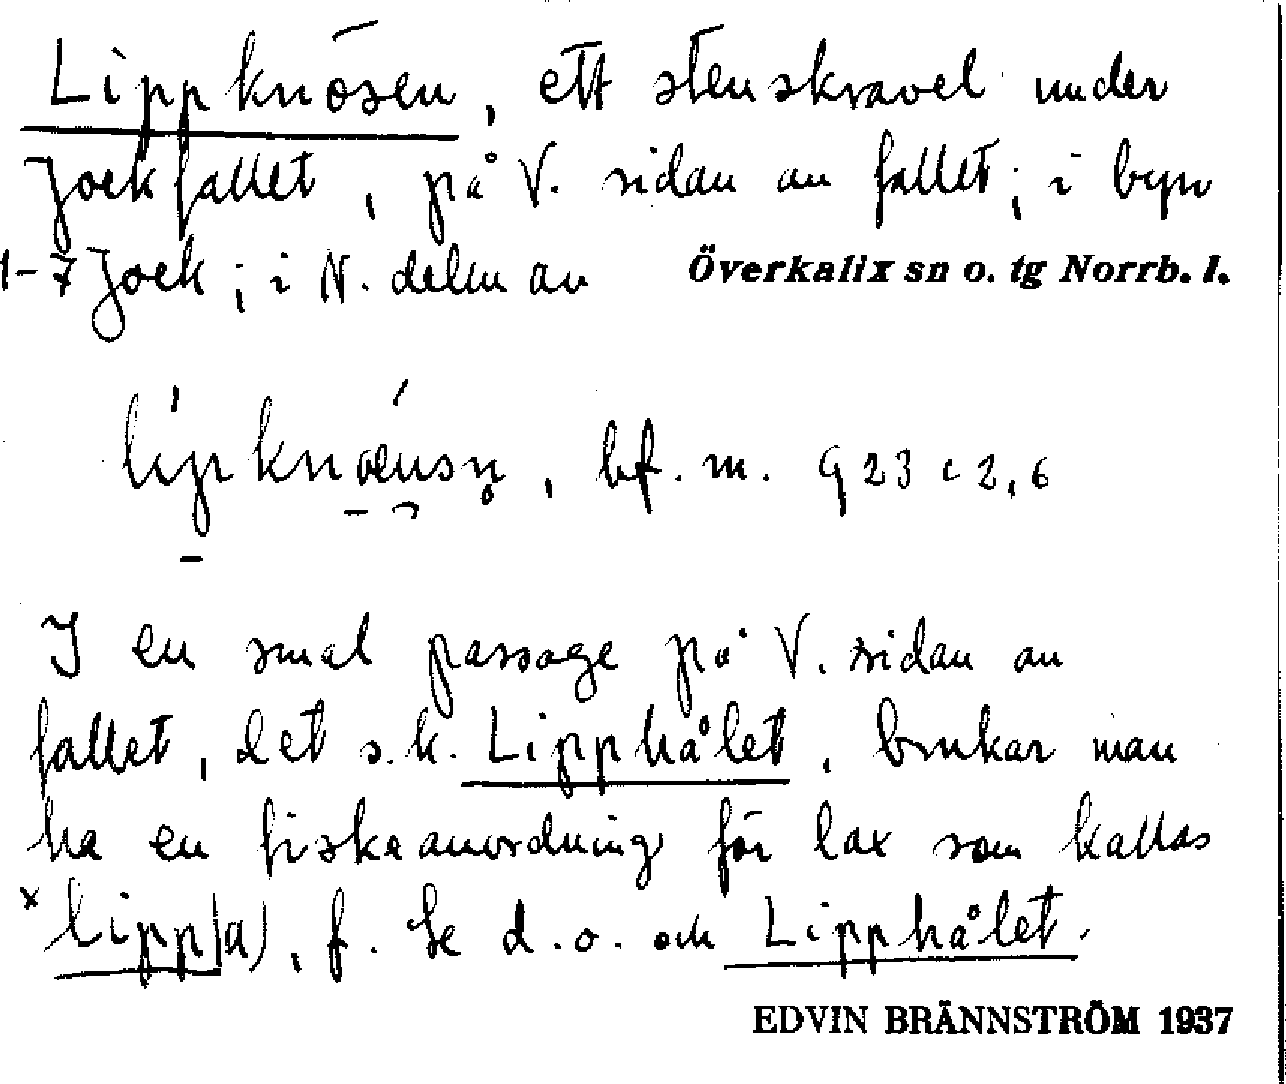 Lippknösen, ett stenskravel under
Jockfallet, på V. sidan av fallet; i byn
1-7 Jock; i N. delen av Överkalix sn o. tg Norrb. l.
bf. m. 923 c 2,6
I en smal passage på V. sidan av
fallet, det s.k. Lipphålet, brukar man
ha en fiskeanordning för lax som kallas
x lipp(a), f. Se d.o. och Lipphålet.
EDVIN BRÄNNSTRÖM 1937